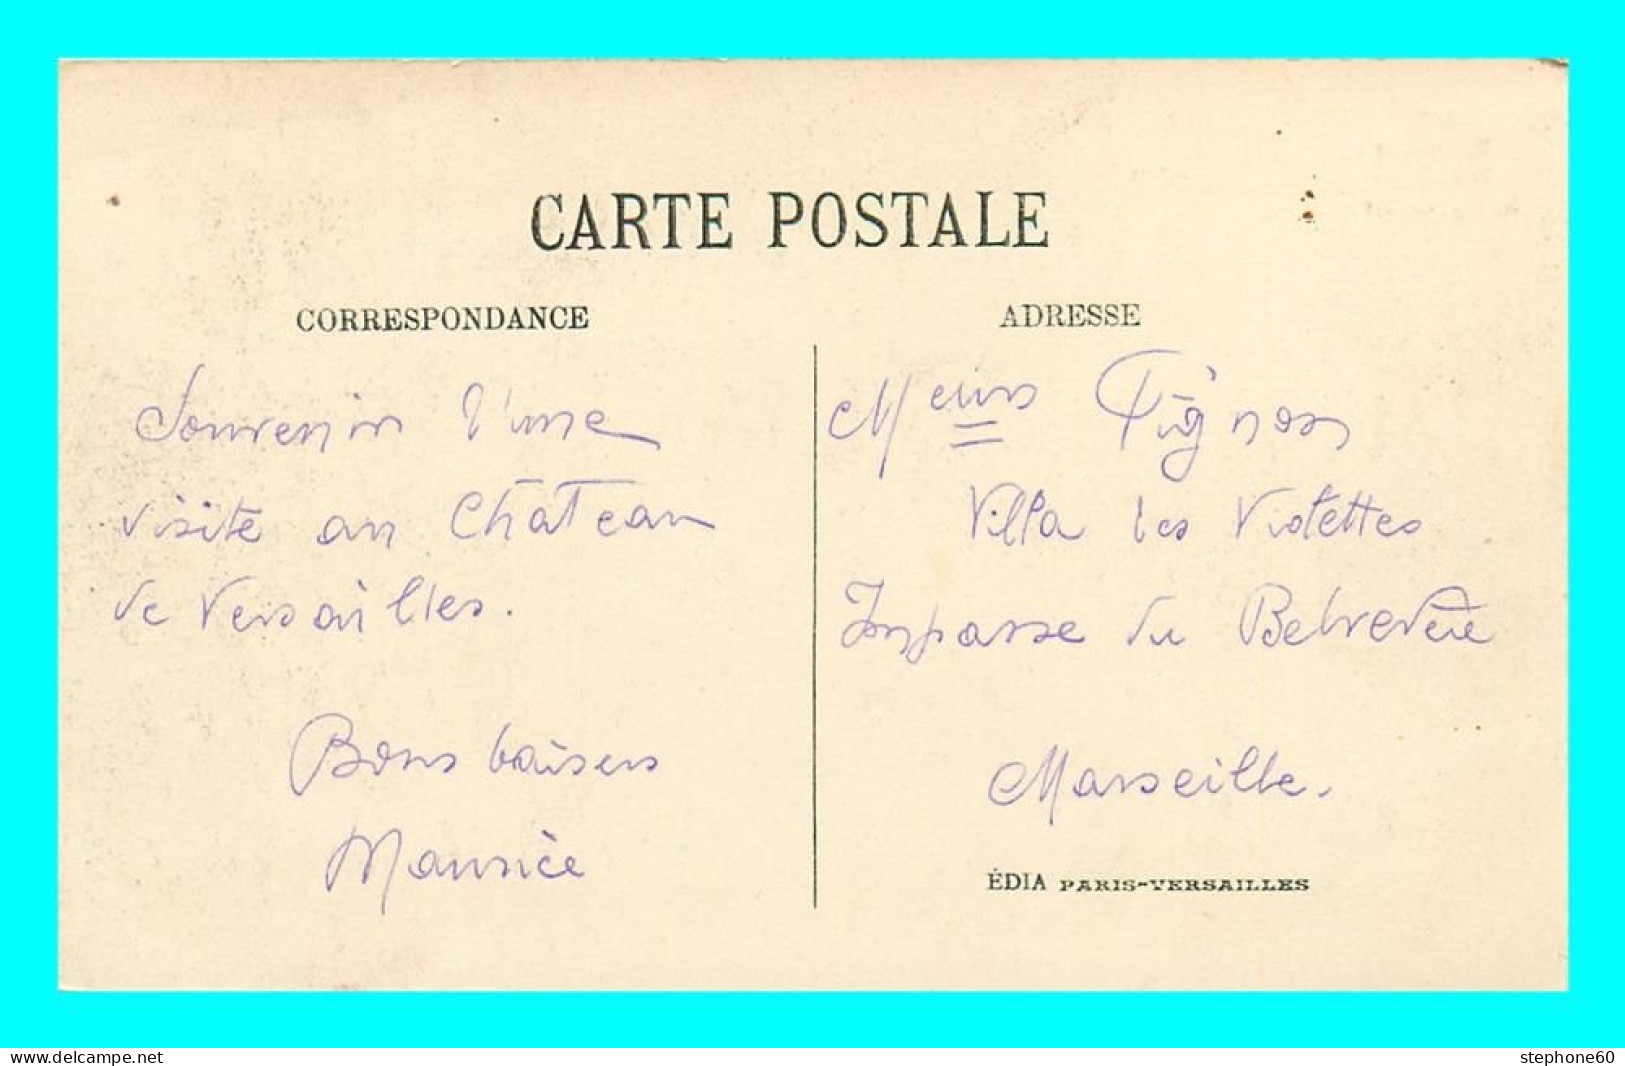 CARTE POSTALE
CORRESPONDANCE
Souvenir d'une
visite au Château
de Versailles.
Bons baisers
Maurice
ADRESSE
Villa les Violettes
Impasse du Belvedère
Marseille.
ÉDIA PARIS-VERSAILLES
www.delcampe.net
stephone60